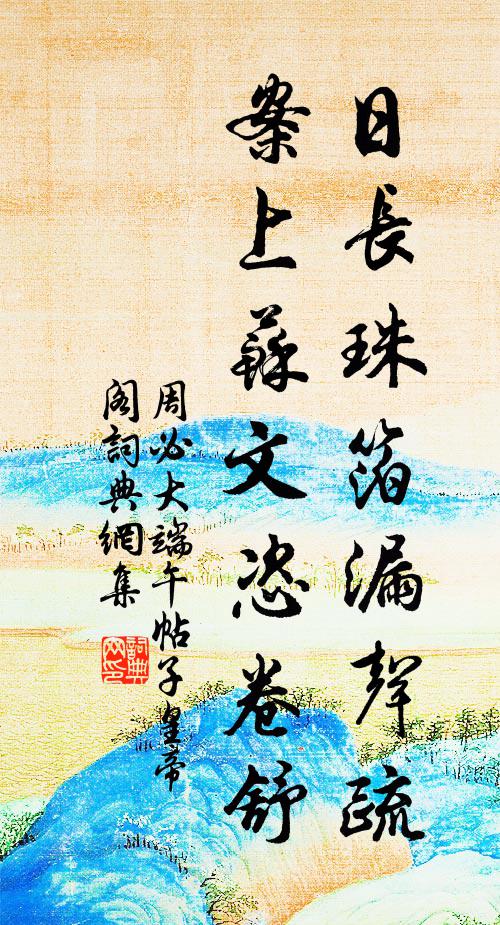 日長珠箔漏聲疏
案上蘇文恣卷舒
周必大端午帖子皇帝
閣詞典網集
詞典網印